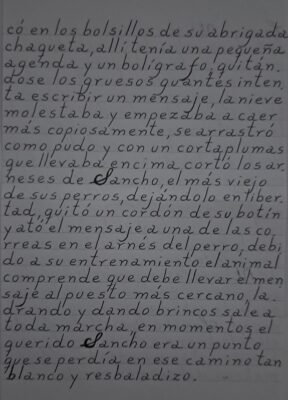 có en los bolsillos de su abrigada
chaqueta, allí tenía una pequeña
agenda y un bolígrafo, quitán.
dose los gruesos guantes inten
ta escribir un mensaje, la nieve
molestaba y empezaba a caer
más copiosamente, se arrastró
como pudo y con un cortaplumas
que llevaba encima cortó los ar
neses de Sancho, el más viejo
de sus perros, dejándolo en liber
tad, quitó un cordón de su botín
y ató el mensaje a una de las co
rreas en el arnés del perro, debi
do a su entrenamiento el animal
comprende que debe llevar el men
saje al puesto más cercano, la.
drando y dando brincos sale a
toda marcha, en momentos el
querido Sancho era un punto
que se perdía en ese camino tan
blanco y resbaladizo.